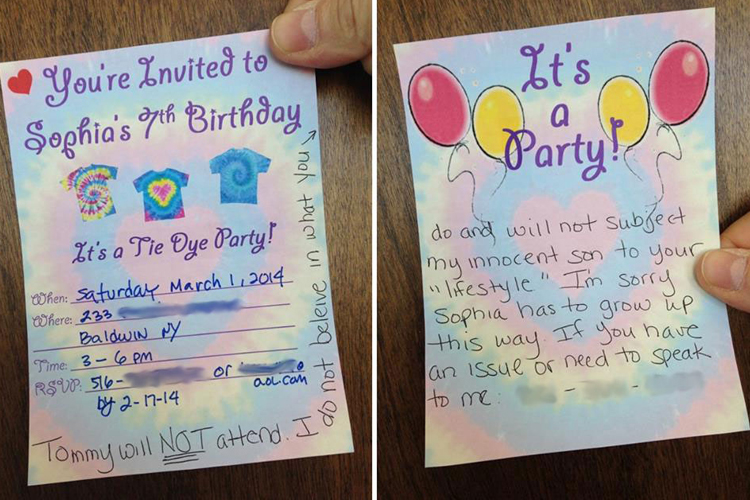 You're Invited to
Sophia's 7th Birthday
It's a Tie Dye Party!
When: Saturday March 1, 2014
Where: 233
Baldwin NY
Time: 3-6 pm
RSVP: 516- or
aol.com
by 2-17-14
Tommy will NOT attend. I
do not beleive in what you →
It's
a
Party!
do and will not subject
my innocent son to your
"lifestyle" I'm sorry
Sophia has to grow up
this way. If you have
an issue or need to speak
to me: - -